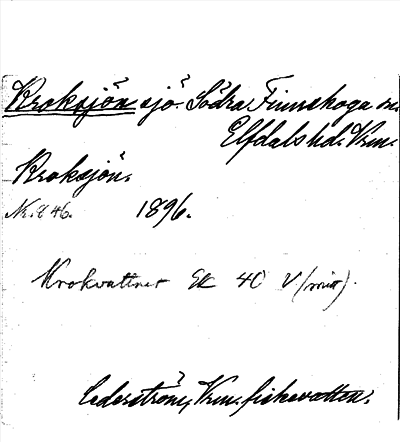 Kroksjön sjö. Södra Finnskoga sn.
Elfdals hd. Vrm.
Kroksjön.
Nr. 846. 1896.
Krokvattnet Ek 40 V (mitt).
Cederström, Vrm. fiskevatten.